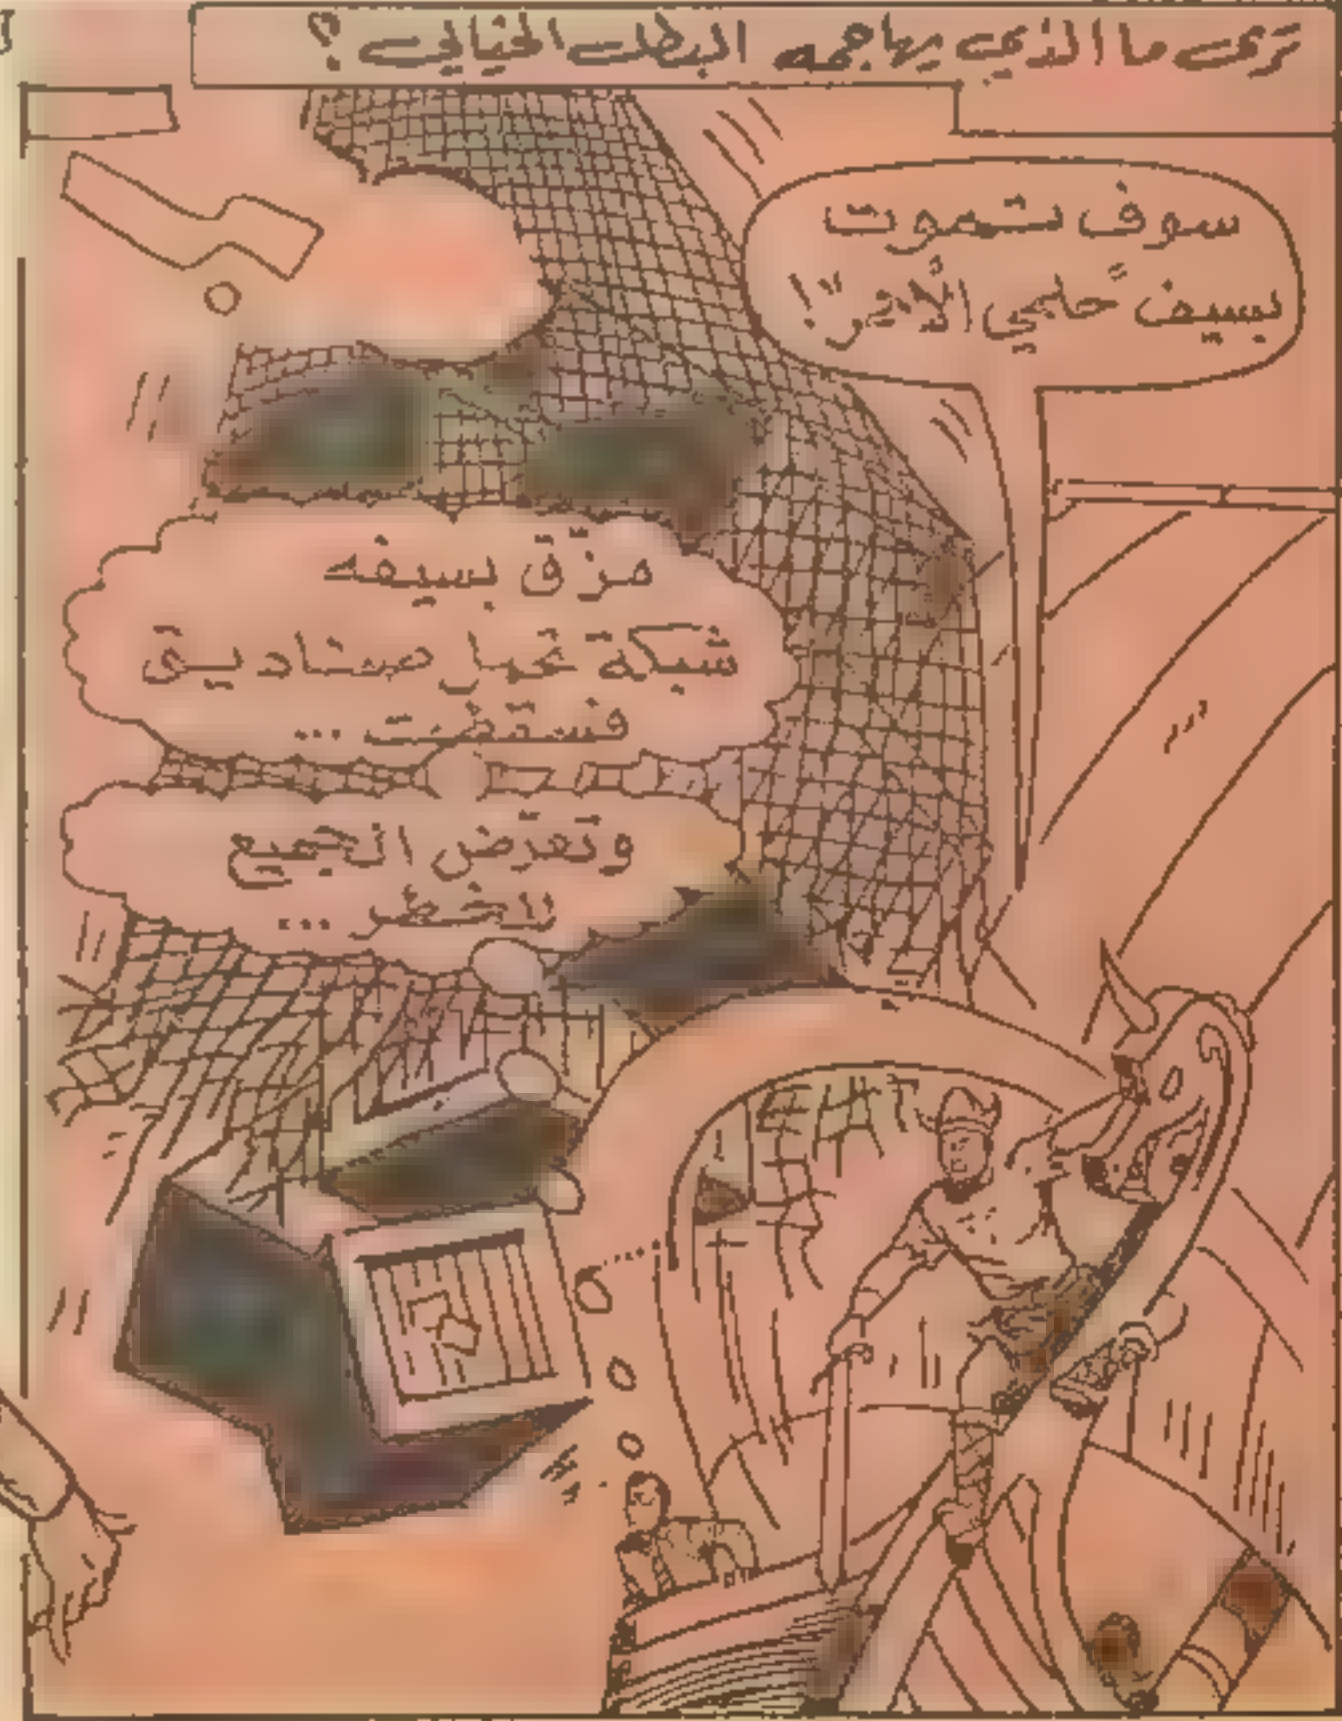 ترى ما الذي يهاجمه البطل الخيالي ؟
سوف تموت
بسيف "حلمي الأخير"!
مزّق بسيفه
شبكة تحمل صناديق
فسقطت ...
وتعرّض الجميع
للخطر ...